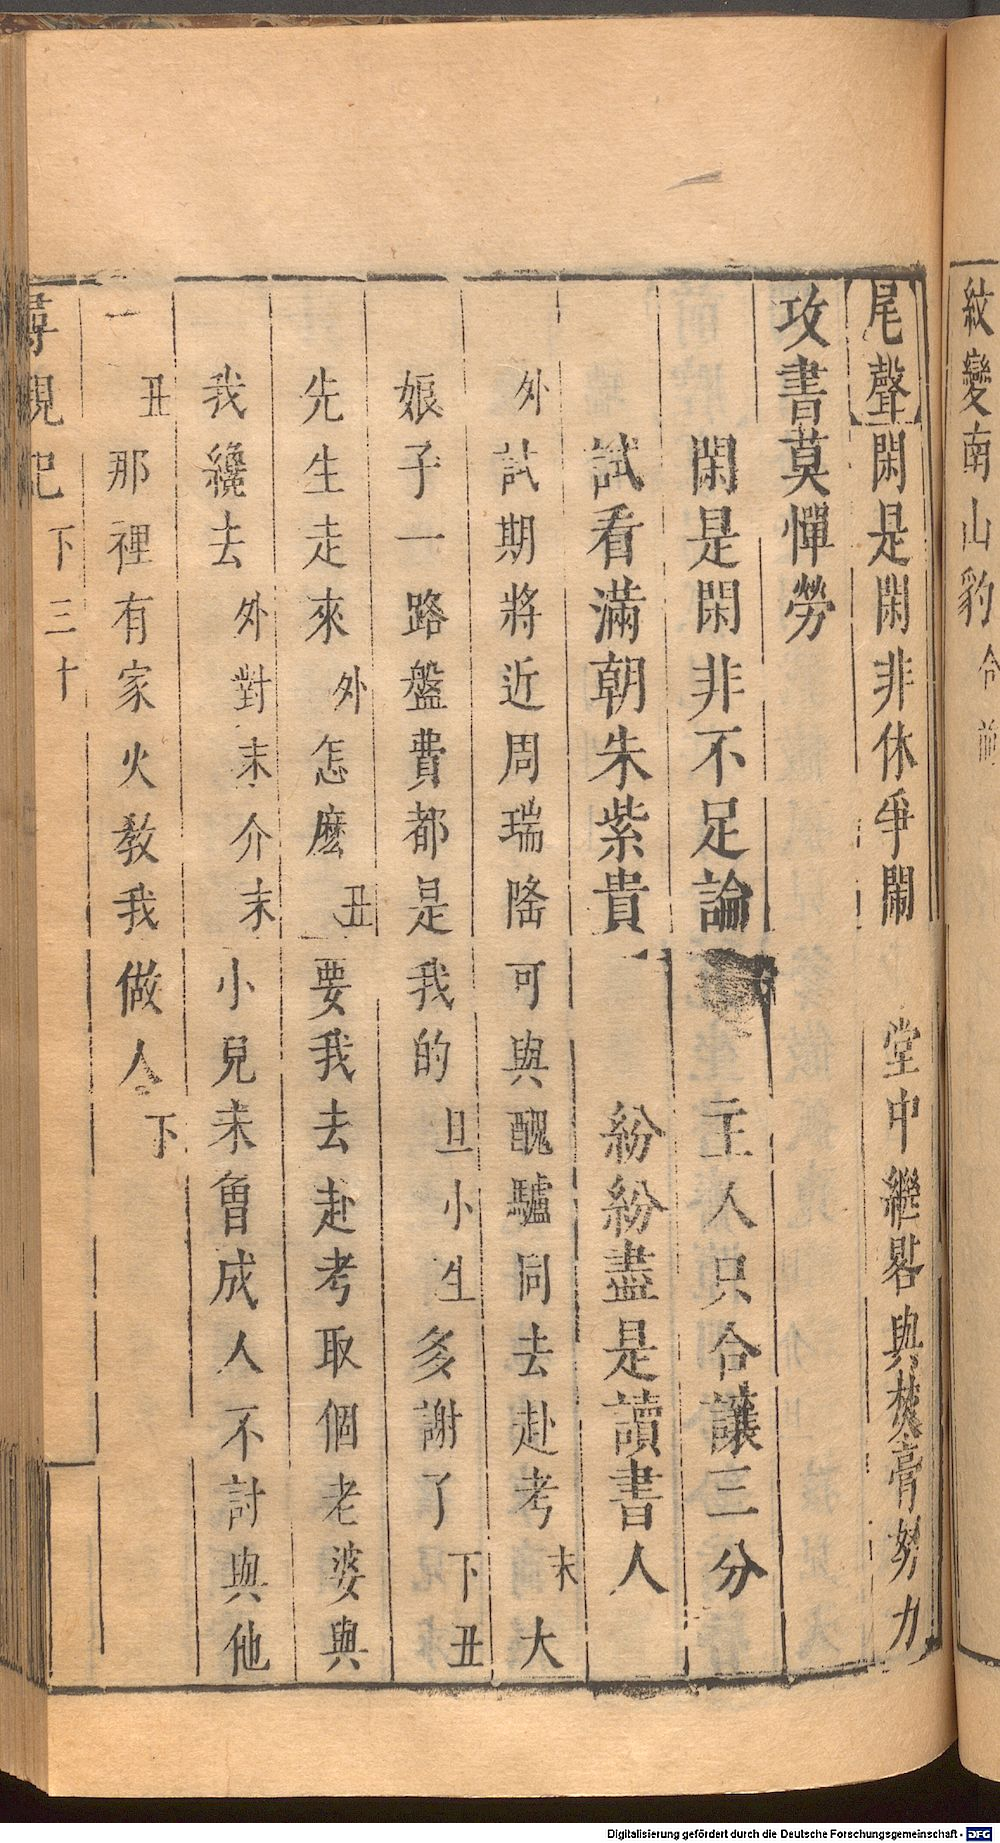 紋變南山豹 合前
尾聲 閑是閑非休爭鬧 堂中繼晷與焚膏努力
攻書莫憚勞
閑是閑非不足論 主人只合讓三分
試看滿朝朱紫貴 紛紛盡是讀書人
外 試期將近周瑞隆可與醜驢同去赴考 末 大
娘子一路盤費都是我的 旦小生 多謝了 下 丑
先生走來 外 怎麽 丑 要我去赴考取個老婆與
我纔去 外對末介 末 小兒未曾成人不討與他
丑 那裡有家火教我做人 下
尋親記 下 三十一
Digitalisierung gefördert durch die Deutsche Forschungsgemeinschaft - DFG